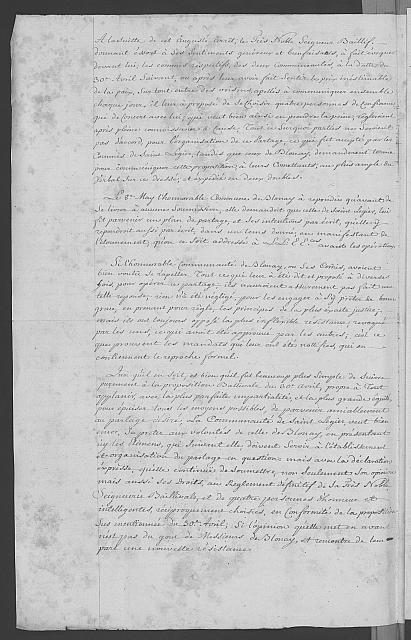 A la suitte de cet Auguste Arrêt, le Très Noble Seigneur Baillif,
donnant essors à Ses Sentiments généreux et bienfaisants, à fait citer
devant lui, les commis respectifs, des deux Communautés, à la datte du
30e Avril Suivant, ou après leur avoir fait Sentir le prix inestimable
de la paix, Sur tout entre des voisins, apellés à communiquer ensemble
chaque jour, il leur a proposé de Se Choisir quatre personnes de confiance
que de Concert avec lui, qui veut bien aussi en prendre la peine, règleroient
après pleine connoissance de Cause, Tout ce Surquoi parties ne Seroient
pas d'accord, pour l'organisation de ce Partage, ce qui fut accepté par les
Commis de Saint Legier, tandis que ceux de Blonay, demanderent terme
pour communiquer cette proposition, à leurs Constituants, un plus ample du
Verbal Sur ce Dressé, et expédié en deux doubles.
Le 8e May l'honorable Commune de Blonay à repondu qu'avant de
Se livrer à aucune Soumission, elle demandoit que celle de Saint Legier, lui
fit parvenir un plan de partage, et Ses intentions par écrit, qu'elle y
repondroit aussi par écrit, dans un tems donné, en manifestant de
l'étonnement, qu'on se Soit addressé à LL.EE.ces avant les opérations
Si l'honorable Communauté de Blonay, ou Ses Comis, avoient
bien voulu Se rapeller Tout ce qui leur à été dit et proposé à diverses
fois, pour opérer ce partage, ils n'auroient assurement pas fait une
telle reponse; rien n'a été négligé, pour les engager à S'y prêter de bonne
grace, en prenant pour règle, les principes de la plus exacte justice;
mais ils ont toujours opposé la plus inflexible résistance,
par les uns, ce qui avoit été approuvé par les autres, c'est ce
que prouvent les mandats qui leur ont été notifiés, qui en
contiennent le reproche formel.
Quoi qu'il en Soit, et bien qu'il fut beaucoup plus Simple de Suivre
purement à la proposition Baillivale du 30e Avril, propre à Tout
applanir, avec la plus parfaite impartialité, et la plus grande équité,
pour épuiser Tous les moyens possibles, de parvenir amiablement
au partage désiré, La Communauté de Saint Légier veut bien
encor, Se prêter aux volontés de celle de Blonay, en présentant
icy les Elemens, qui Suivant elle doivent Servir à l'établissement
et organisation du partage en question, mais avec la déclaration
expresse, quelle continue de Soumettre, non Seulement Son opinion
mais aussi Ses Droits, au Règlement définitif de Sa Très Noble
Seigneurie Baillivale, et de quatre personnes d'honneur et
intelligentes, réciproquement choisies, en Conformité de la proposition
Sus mentionnée du 30e Avril; Si l'opinion qu'elle met en avant
n'est pas du gout de Messieurs de Blonay, et rencontre de leur
part une nouvelle résistance.